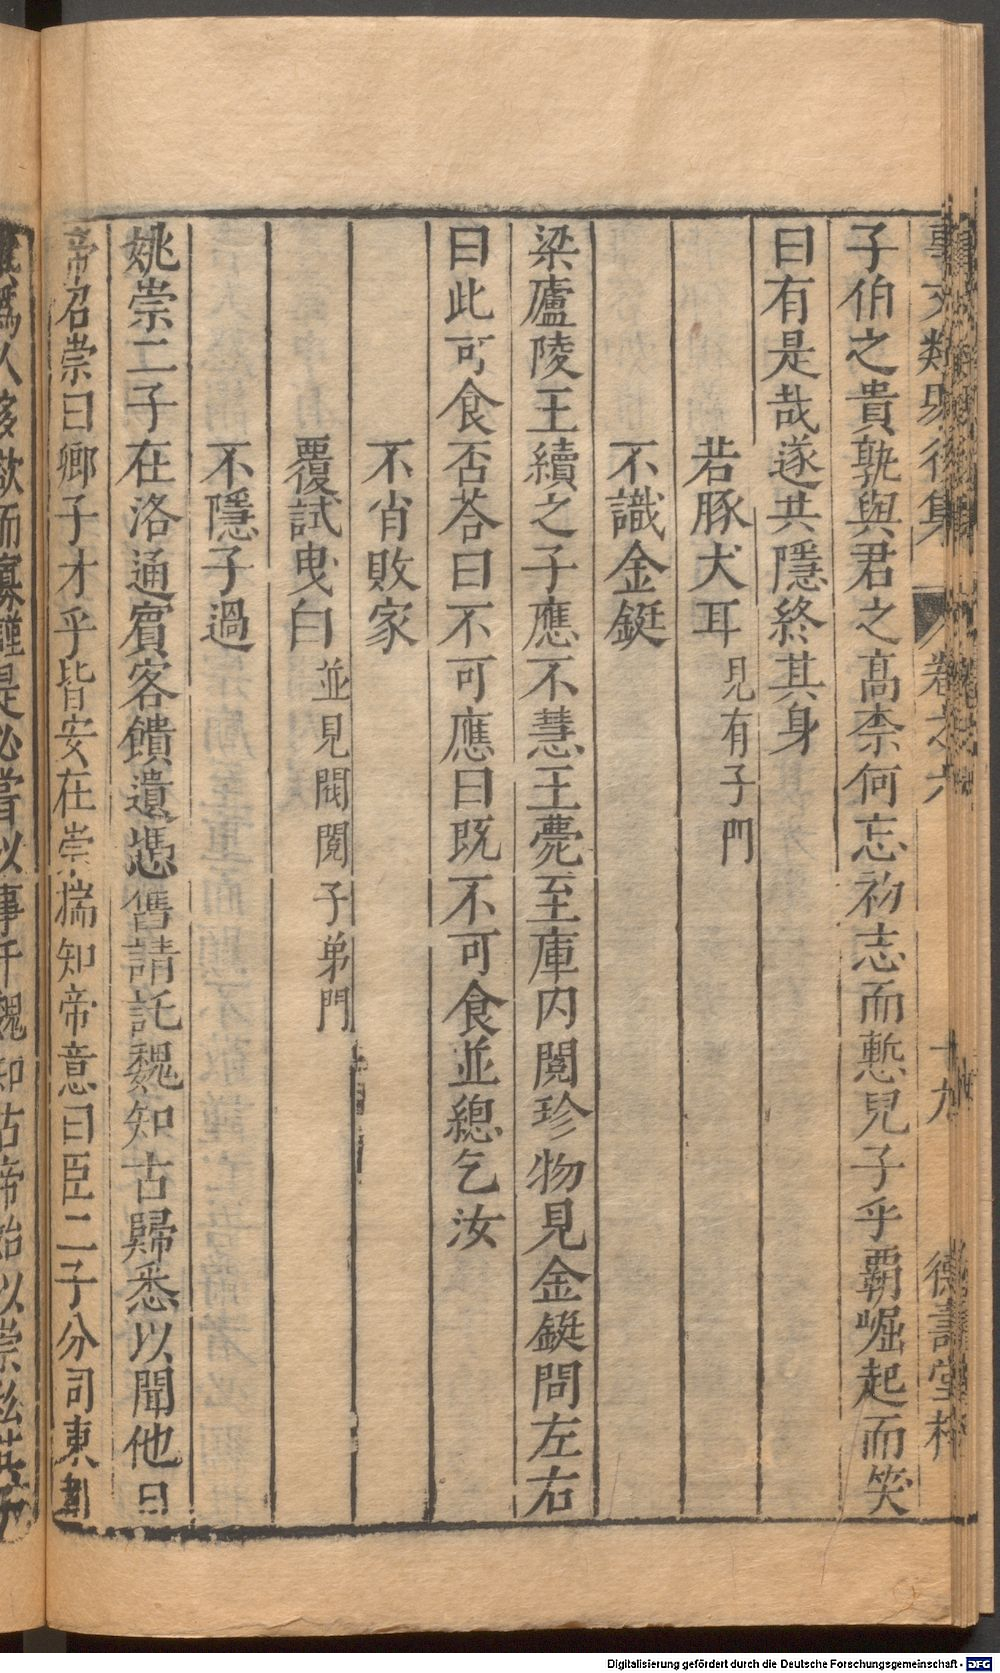 事文類聚後集 卷之六 十九 德壽堂梓
子伯之貴孰與君之高柰何忘初志而慙兒子乎覇崛起而笑
曰有是哉遂共隱終其身
若豚犬耳 見有子門
不識金鋌
梁廬陵王續之子應不慧王薨至庫内閱珍物見金鋌問左右
曰此可食否荅曰不可應曰既不可食並總乞汝
不肖敗家
覆試曳白 並見閥閱子弟門
不隱子過
姚崇二子在洛通賓客饋遺慿舊請託魏知古歸悉以聞他日
帝召崇曰卿子才乎皆安在崇揣知帝意曰臣二子分司東都
爲人多欲而寡謹是必嘗以事干魏知古帝始以崇私其子
Digitalisierung gefördert durch die Deutsche Forschungsgemeinschaft - DFG